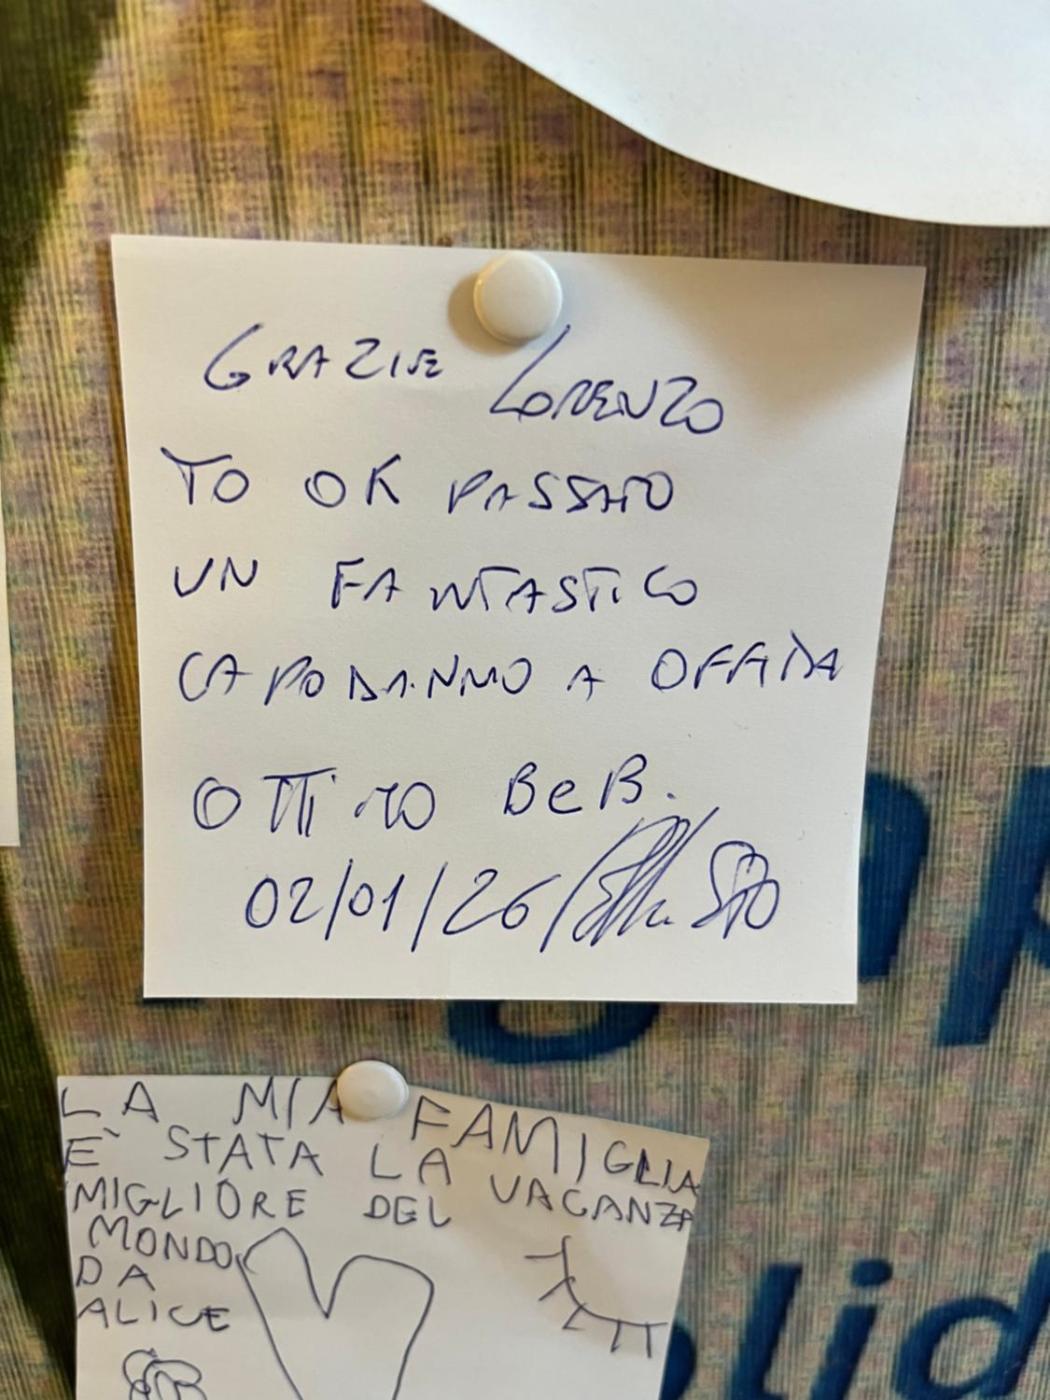 GRAZIE LORENZO
TO OK PASSATO
UN FANTASTICO
CAPODANNO A OFFIDA
OTTIMO BeB.
02/01/26
LA MIA FAMIGLIA
È STATA LA VACANZA
MIGLIORE DEL
MONDO
DA
ALICE